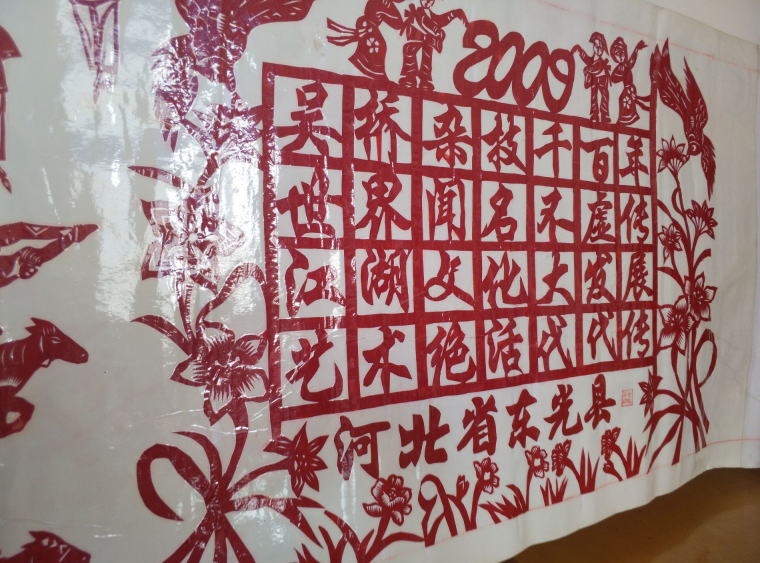 2009
吴桥杂技千百年
世界闻名不虚传
江湖文化大发展
艺术绝活代代传
河北省东光县